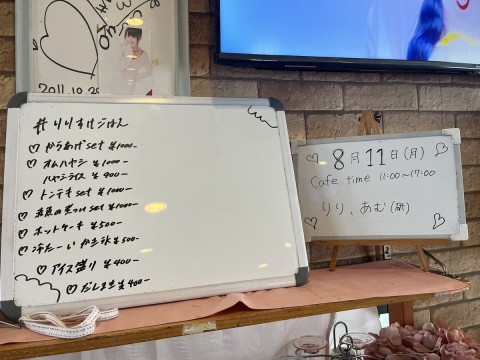 2011.10.29
#りりすけごはん
♡からあげset ¥1000-
♡オムハヤシ ¥1000-
ハヤシライス ¥900-
♡トンテキset ¥1000-
♡赤魚の煮つけset ¥1000-
♡ホットケーキ ¥500-
♡冷た〜いかき氷 ¥500-
♡アイス盛り ¥400-
♡だしまき ¥400-
♡8月11日(月)
Cafe time 11:00〜17:00
りり、あむ(研)